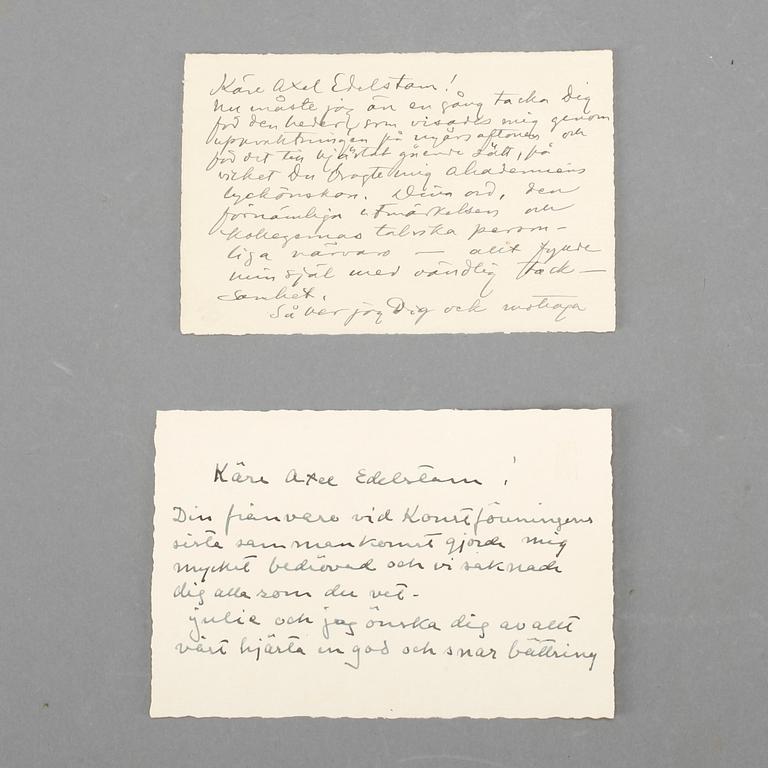 Käre Axel Edelstam!
Nu måste jag än en gång tacka Dig
för den heder, som visades mig genom
uppvaktningen på nyårsaftonen och
för det till hjärtat gående sätt, på
vilket Du bragte mig Akademiens
lyckönskan. Dina ord, den
förnämliga utmärkelsen och
kollegernas talrika person-
liga närvaro — allt fyllde
min själ med oändlig tack-
samhet.
Så ber jag Dig och mottaga
Käre Axel Edelstam!
Din frånvaro vid Konstföreningens
sista sammankomst gjorde mig
mycket bedrövad och vi saknade
dig alla som du vet.
Julia och jag önska dig av allt
vårt hjärta en god och snar bättring